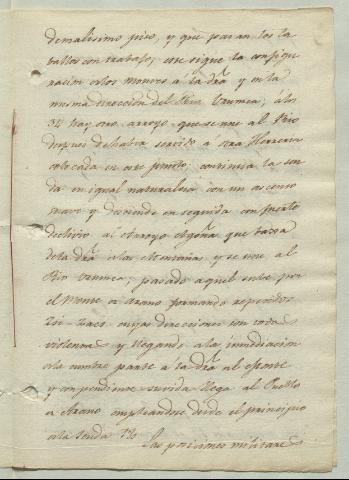 de malisimo piso, y que pasan los ca
ballos con trabajo; este sigue la configu
racion de los montes a la dra y en la
misma direccion del Rio Urumea; á los
34 hay otro arroyo que se une al Rio
despues de haber servido a otra Herreria
colocada en este punto; continúa la sen
da en igual naturaleza con un ascenso
suave y desciende en seguida con fuerte
declivio al Arroyo que baxa
de la dra de las Montañas y se une al
Rio Urumea; pasado aquel sube por
el Monte de Arano formando repetidos
Zic-zacs cuyas direcciones son todas
violentas y llegando a la inmediacion
de la cumbre parte a la dra al Monte
y con pendiente seguida llega al Pueblo
de Arano empleandose desde el principio
de la senda
Las posiciones militares